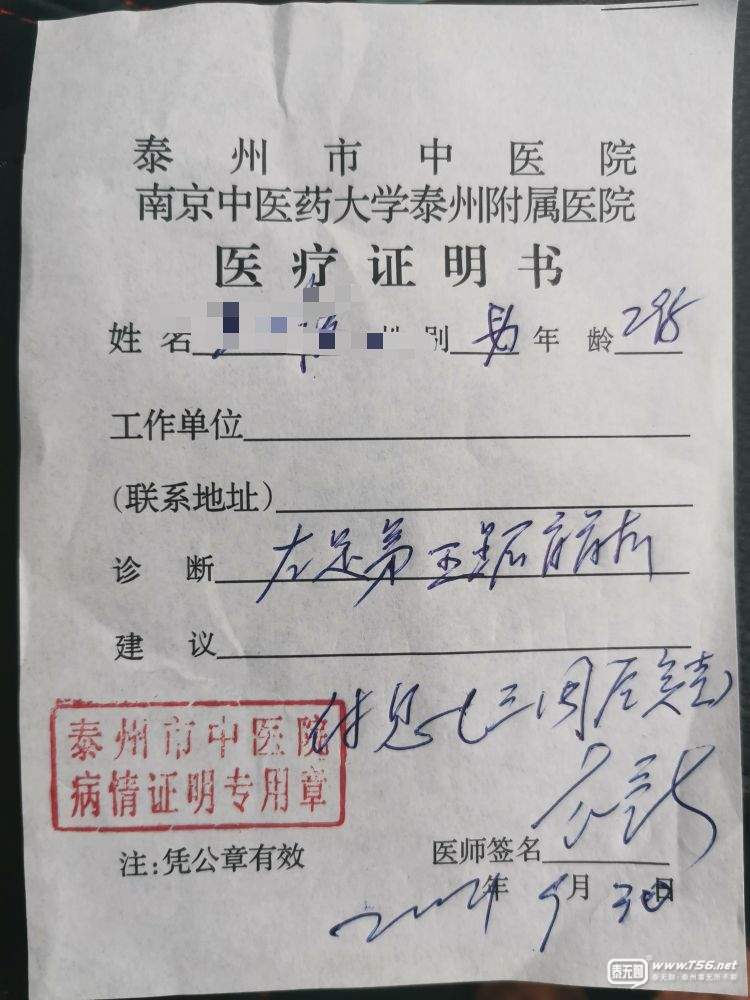 泰州市中医院
南京中医药大学泰州附属医院
医疗证明书
姓名 性别 男 年龄 29岁
工作单位
(联系地址)
诊断 左足第五跖骨骨折
建议
休息 三周后复查
泰州市中医院
病情证明专用章
注:凭公章有效
医师签名
年 月 30日
泰无聊
www.T56.net